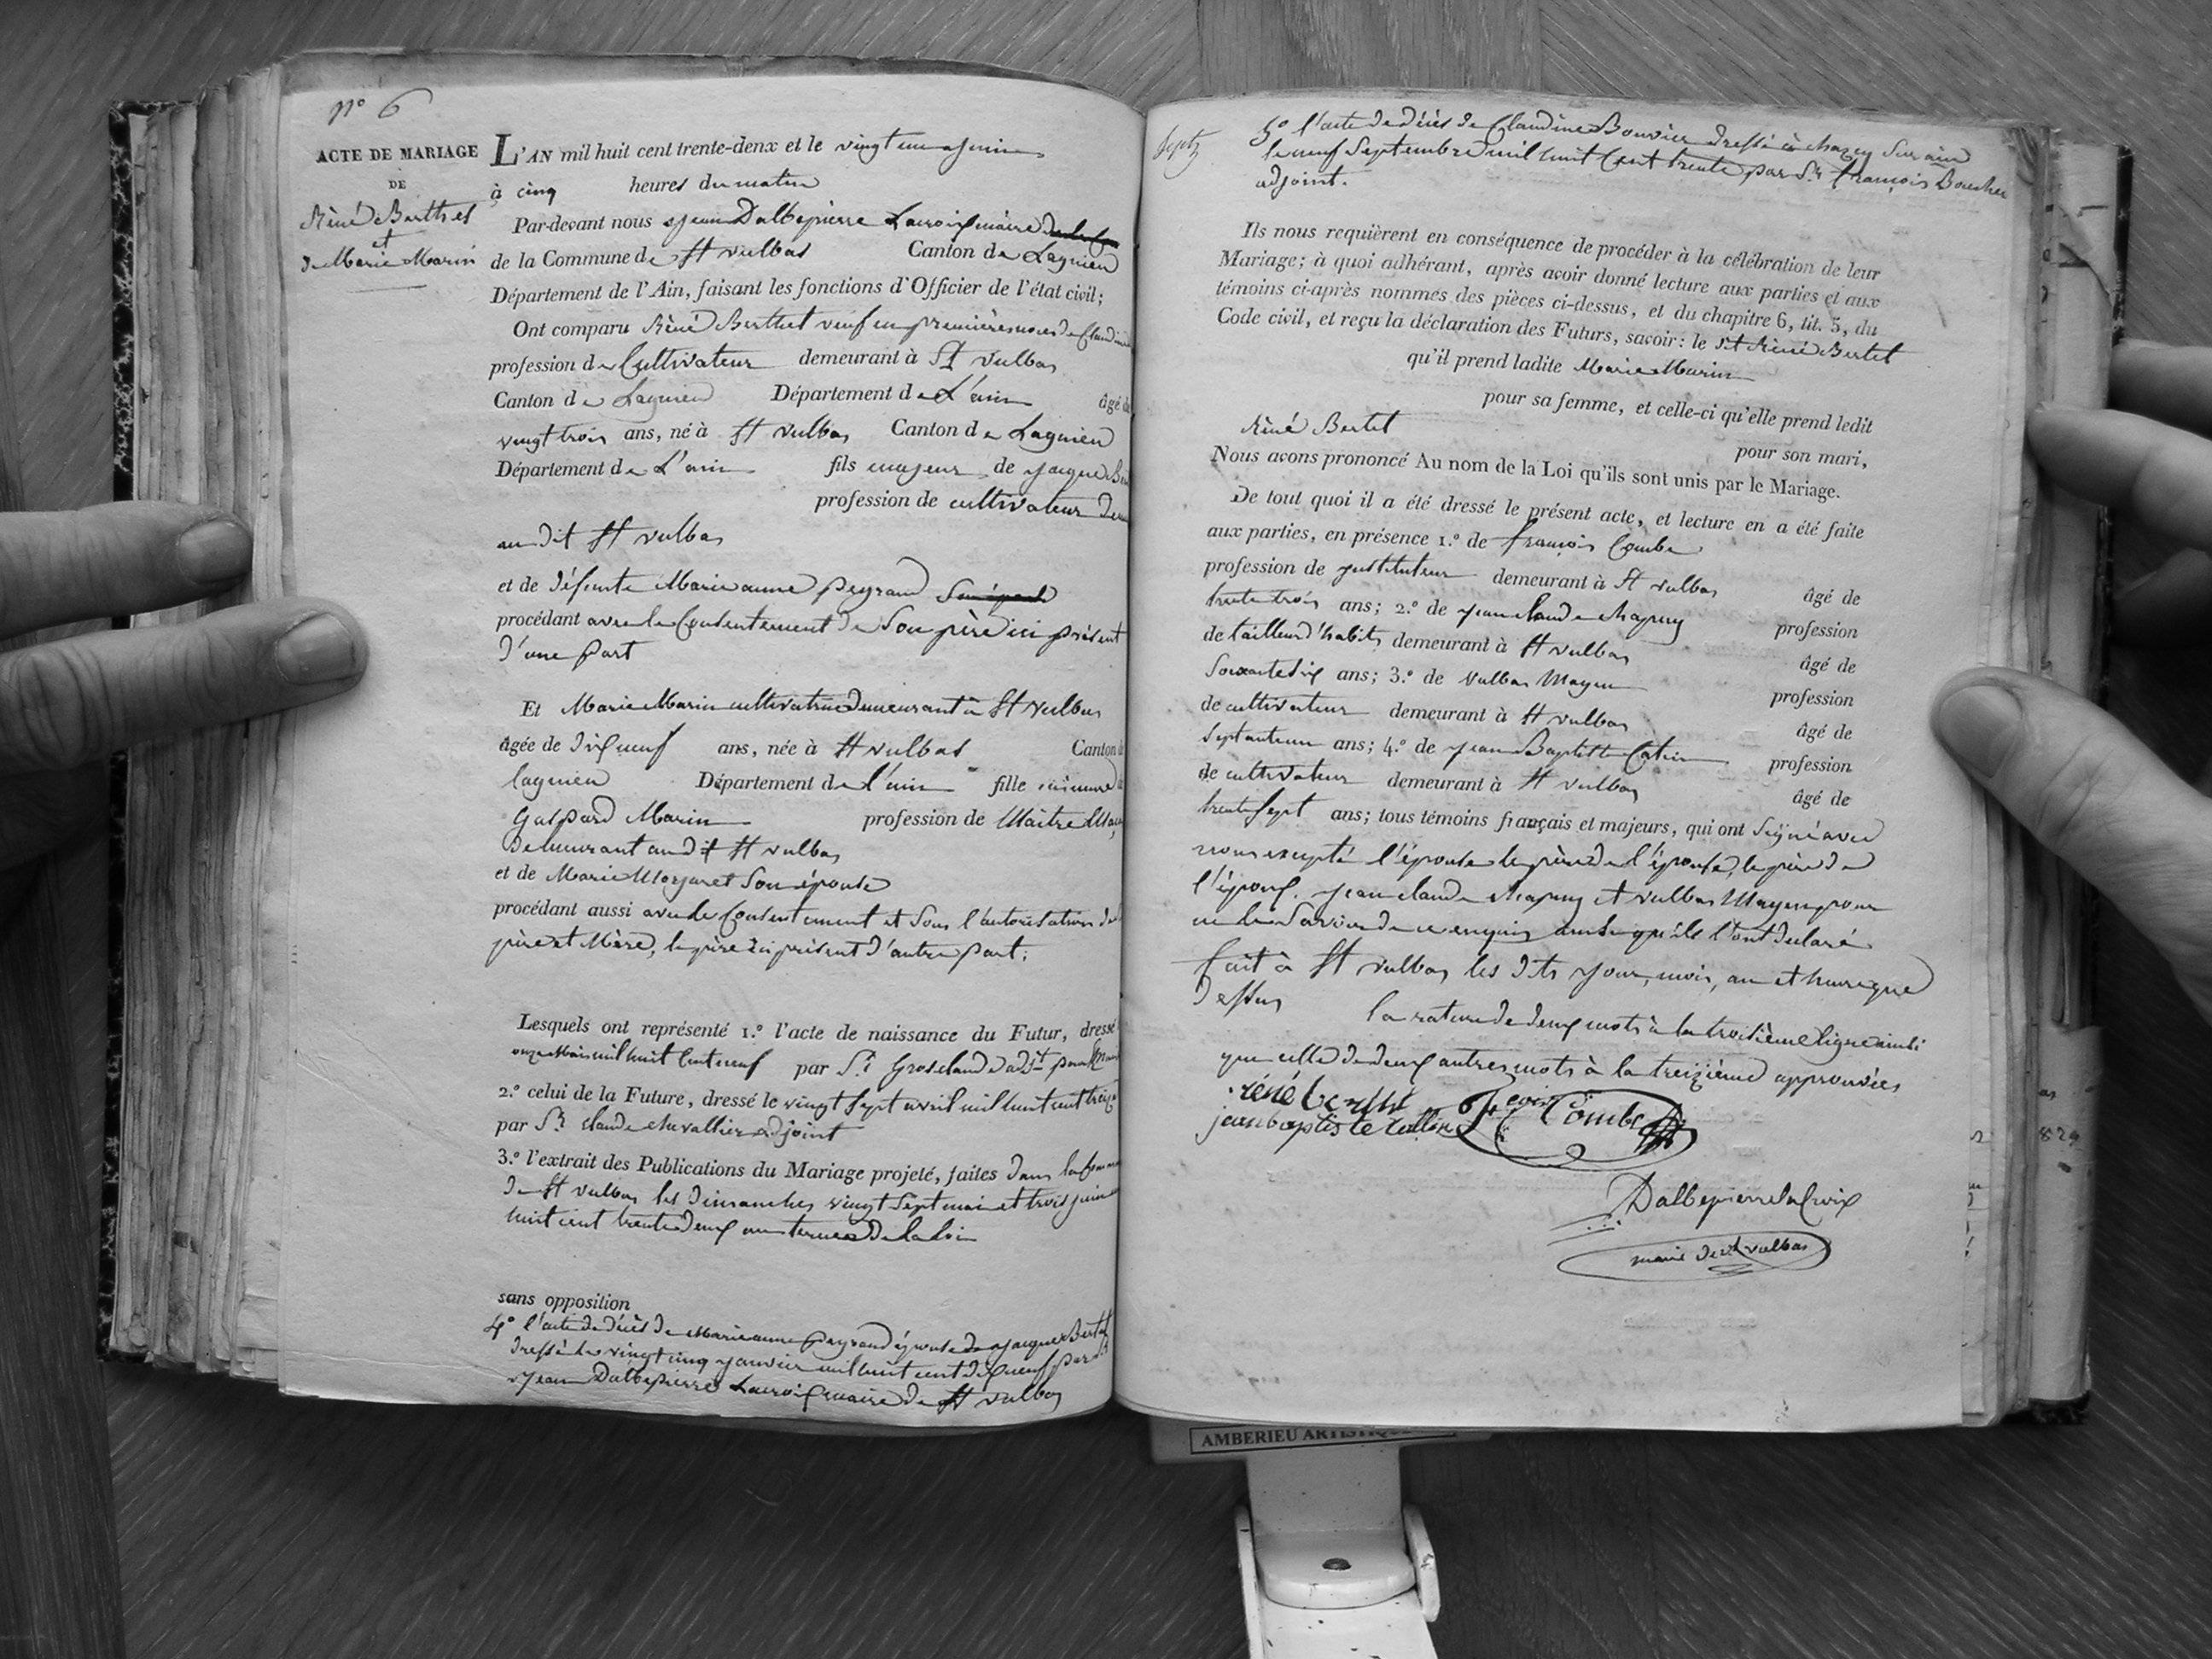 N° 6
ACTE DE MARIAGE
DE
Réné Berthet
et
de Marie Marin
L'AN mil huit cent trente-deux et le vingt un juin
à cinq heures du matin
Par-devant nous Jean Dalbepierre Lacroix maire
de la Commune de St vulbas Canton de Lagnieu
Département de l'Ain, faisant les fonctions d'Officier de l'état civil;
Ont comparu Réné Berthet veuf en premières noces de Claudine
profession de Cultivateur demeurant à St vulbas
Canton de Lagnieu Département de L'ain âgé de
vingt trois ans, né à St vulbas Canton de Lagnieu
Département de L'ain fils majeur de jacque
profession de cultivateur
au dit St vulbas
et de défunte Marie anne peyraud
procédant avec le Consentement de Son père ici présent
d'une part
Et Marie Marin cultivatrice demeurant à St vulbas
âgée de dix neuf ans, née à St vulbas Canton de
lagnieu Département de l'ain fille mineure de
Gaspard Marin profession de Maître
demeurant au dit St vulbas
et de Marie Morgaret Son épouse
procédant aussi avec le Consentement et Sous l'autorisation de
père et Mère, le père ici présent d'autre part;
Lesquels ont représenté 1.° l'acte de naissance du Futur, dressé
onze Mars mil huit Cent neuf par Sr Grosclaude adjt
2.° celui de la Future, dressé le vingt Sept avril mil huit cent treize
par Sr Claude Chevallier adjoint
3.° l'extrait des Publications du Mariage projeté, faites dans la
de St vulbas les dimanches vingt Sept mai et trois juin
huit cent trente deux aux termes de la loi
sans opposition
4° l'acte de décès de Marie anne peyraud épouse de jacque Bertet
dressé le vingt cinq janvier mil huit cent dix neuf par
Jean Dalbepierre Lacroix maire de St vulbas
5° l'acte de décès de Claudine Bouvier dressé à chazey Sur ain
le neuf Septembre mil huit Cent trente par Sr françois
adjoint.
Ils nous requièrent en conséquence de procéder à la célébration de leur
Mariage; à quoi adhérant, après avoir donné lecture aux parties et aux
témoins ci-après nommés des pièces ci-dessus, et du chapitre 6, tit. 5, du
Code civil, et reçu la déclaration des Futurs, savoir: le dit Réné Bertet
qu'il prend ladite Marie Marin
pour sa femme, et celle-ci qu'elle prend ledit
Réné Bertet
pour son mari,
Nous avons prononcé Au nom de la Loi qu'ils sont unis par le Mariage.
De tout quoi il a été dressé le présent acte, et lecture en a été faite
aux parties, en présence 1.° de françois Combe
profession de justituteur demeurant à St vulbas âgé de
trente trois ans; 2.° de jean claude chapuy profession
de tailleur d'habits demeurant à St vulbas âgé de
Soixante Six ans; 3.° de vulbas Mayeu profession
de cultivateur demeurant à St vulbas âgé de
Septante un ans; 4.° de jean Baptiste profession
de cultivateur demeurant à St vulbas âgé de
trente Sept ans; tous témoins français et majeurs, qui ont Signé avec
nous excepté l'épouse le père de l'épouse, le père de
l'époux, jean claude chapuy et vulbas Mayeu pour
ne le Savoir de ce enquis ainsi qu'ils l'ont déclaré
fait à St vulbas les dits jour, mois, an et heure que
dessus
la rature de deux mots à la troisième ligne ainsi
que celle de deux autres mots à la treizième approuvées
réné bertet
jean baptiste
Combe
Dalbepierre la Croix
maire de St vulbas
AMBERIEU